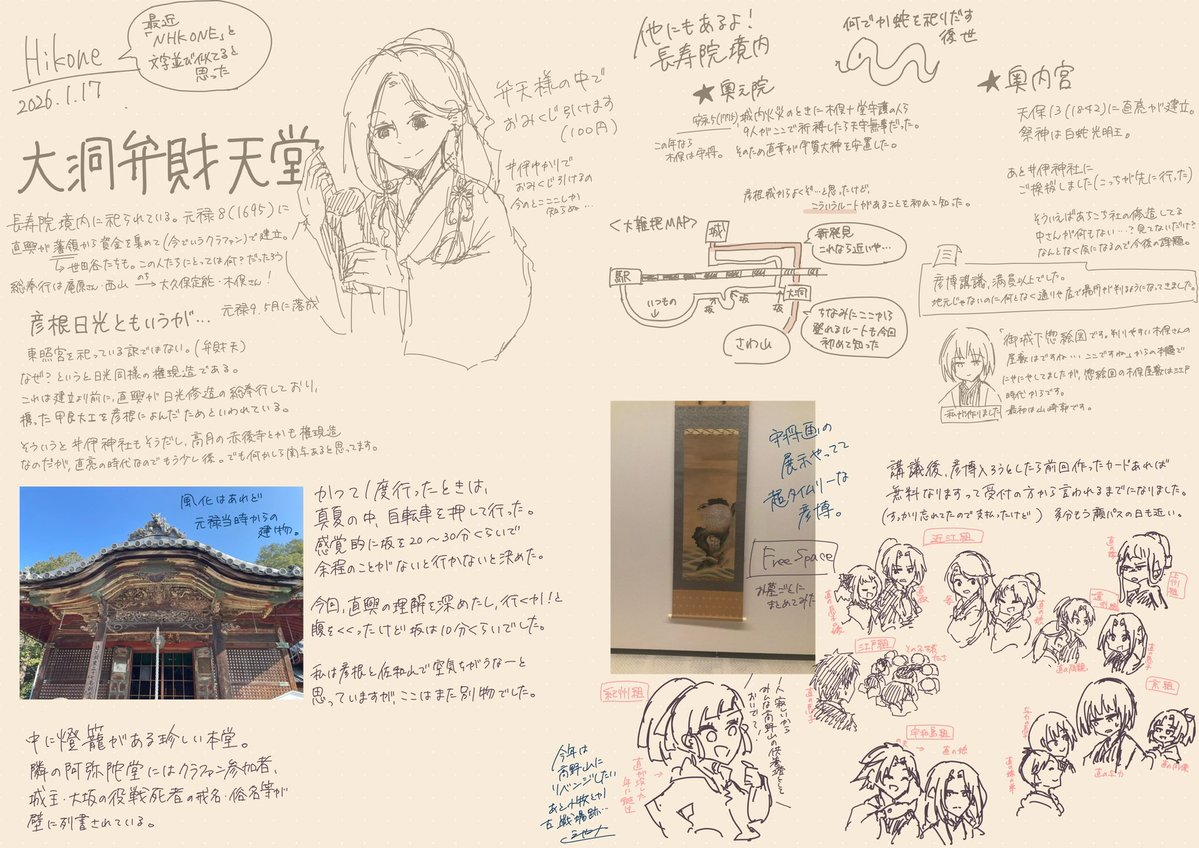 Hikone
2026.1.17
最近
「NHKONE」と
文字並びが似てると
思った
大洞弁財天堂
弁天様の中で
おみくじ引けます
(100円)
井伊ゆかりで
おみくじ引けるの
今のとこここしか
知らぬ…
長寿院境内に祀られている。元禄8(1695)に
直興が藩領から資金を集めて(今でいうクラファン)で建立。
↳世田谷たちも。この人たちにとっては何?だったろう
総奉行は庵原さん・西山 のち→大久保定能・木俣さん!
元禄9.5月に落成
彦根日光ともいうが…
東照宮を祀っている訳ではない。(弁財天)
なぜ?というと日光同様の権現造である。
これは建立より前に、直興が日光修造の総奉行しており、
携った甲良大工を彦根によんだためといわれている。
そういうと井伊神社もそうだし、高月の赤後寺とかも権現造
なのだが、直亮の時代なのでもう少し後。でも何かしら関与あると思ってます。
風化はあれど
元禄当時からの
建物。
かつて1度行ったときは、
真夏の中、自転車を押して行った。
感覚的に坂を20〜30分くらいで
余程のことがないと行かないと決めた。
今回、直興の理解を深めたし、行くか!と
腹をくくったけど坂は10分くらいでした。
私は彦根と佐和山で空気ちがうなーと
思っていますが、ここはまた別物でした。
中に燈籠がある珍しい本堂。
隣の阿弥陀堂にはクラファン参加者、
城主・大坂の役戦死者の戒名・俗名等が
壁に列書されている。
他にもあるよ!
長寿院境内
何でか蛇を祀りだす
後世
★奥之院
安永5(1775)、城内火災のときに木俣+堂守護の人ら
9人がここで祈祷したら天守無事だった。
この年なら
木俣は守将。
そのため直幸が宇賀大神を安置した。
★奥内宮
天保13(1842)に直亮が建立。
祭神は白蛇光明王。
あと井伊神社に
ご挨拶しました(こっちが先に行った)
そういえばあちこち社の修造してる
中さんが何もない…?見てないだけ?
なんとなく気になるので今後の課題。
彦根城からよくぞ…と思ったけど、
こういうルートがあることを初めて知った。
<大雑把MAP>
城
新発見
これなら近いや…
駅
いつもの
坂
坂
大洞
さわ山
ちなみにここから
登れるルートも今回
初めて知った
彦博講議、満員以上でした。
地元じゃないのに何となく通りや店で場所が判るようになってきました。
「御城下惣絵図です。判りやすい木俣さんの
屋敷はですね…ここですね」からの本題で
にやにやしてましたが、惣絵図の木俣屋敷は江戸
時代からです。
最初は山崎郭です。
私が作りました
守将画の
展示やってて
超タイムリーな
彦博。
Free Space
お墓ごとに
まとめてみた
講議後、彦博入ろうとしたら前回作ったカードあれば
無料なりますって受付の方から言われるまでになりました。
(すっかり忘れてたので支払ったけど) 多分もう顔パスの日も近い。
近江組
江戸組
紀州組
宇和島組
京組
直の娘
直の娘
今年は
高野山に
リベンジしたい
あと小牧とか
古戦場跡…